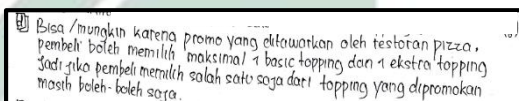 Bisa/mungkin karena promo yang ditawarkan oleh testoran pizza,
pembeli boleh memilih maksimal 1 basic topping dan 1 ekstra topping
Jadi jika pembeli memilih salah satu saja dari topping yang dipromokan
masih boleh-boleh saja.